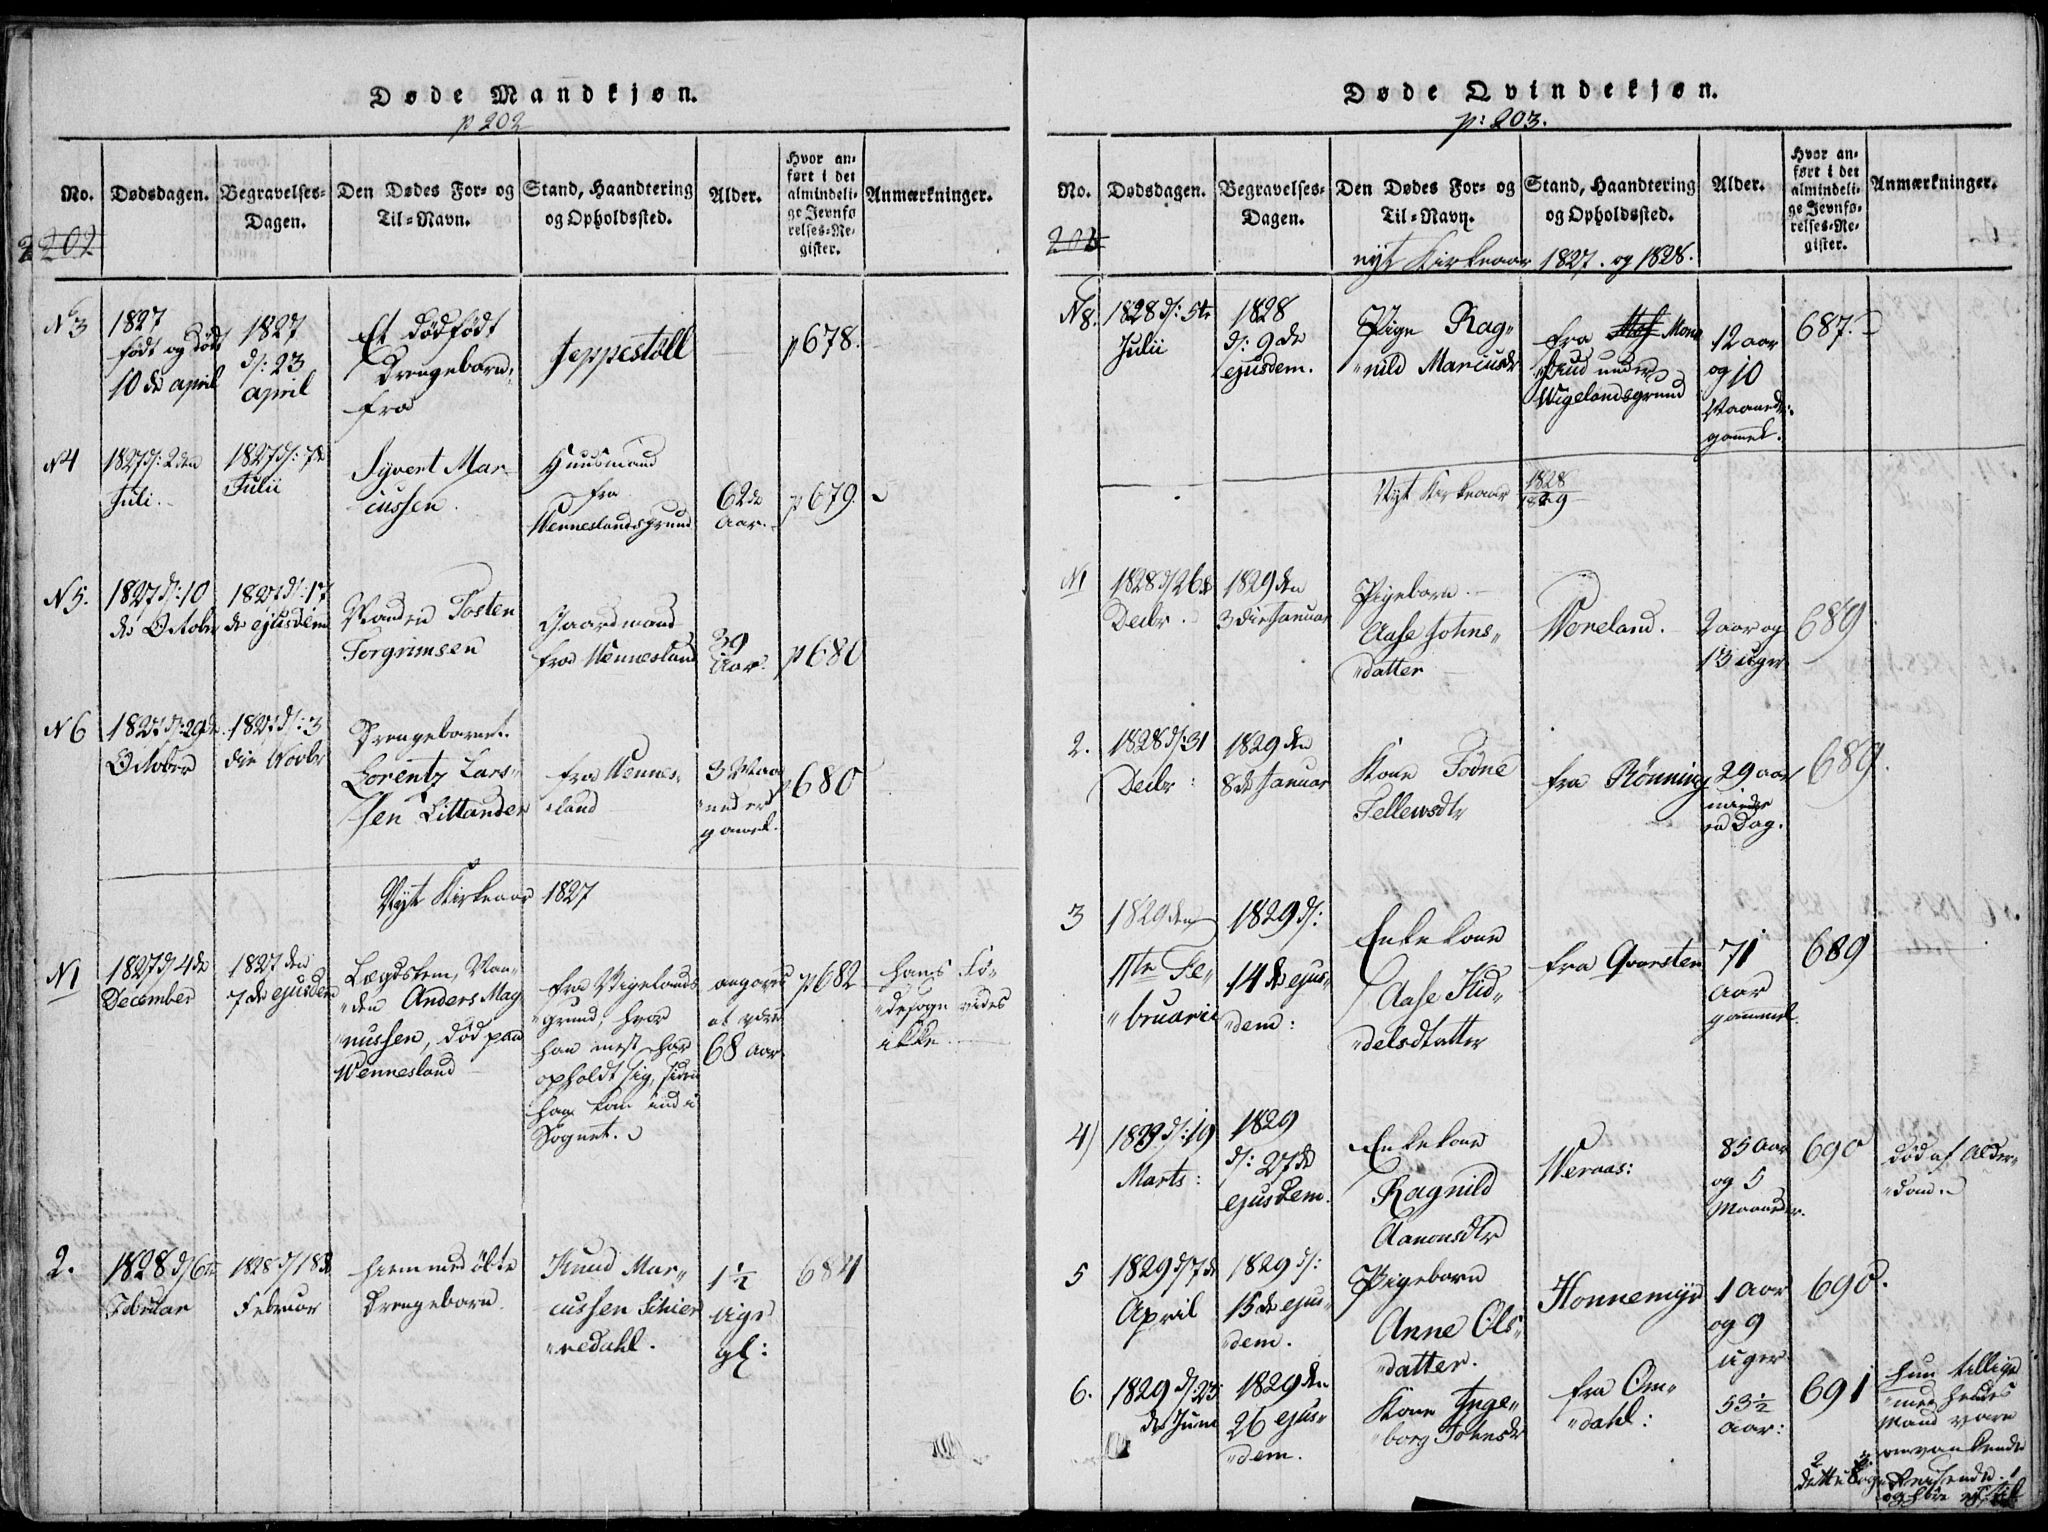 Døde Mandkjøn.
p 202
No.
Dødsdagen.
Begravelses-
Dagen.
Den Dødes For- og
Til-Navn.
Stand, Haandtering
og Opholdssted.
Alder.
Hvor an-
ført i det
almindeli-
ge Jevnfø
relses-Re-
gister.
Anmærkninger.
202
No 3
1827
født og død
10 de april
1827
d: 23
april
Et dødfødt
Drengebarn
fra
Jeppestøll
p 678.
N 4
1827 d: 2den
Juli.
1827 d: 7de
Julii
Syvert Mar-
cussen.
Huusmand
fra
Wenneslandsgrund
62de
Aar.
p 679.
N 5.
1827 d: 10
de Octobr
1827 d: 17
de ejusdem
Manden Tosten
Torgrimsen
Gaardmand
fra Wennesland
39
Aar.
p 680
N 6
1827 d: 29de
October
1827 d: 3
die Novbr
Drengebarnet
Lorentz Lars-
sen Littander
fra Wennes-
land
3 Maa
neder
gammel.
p 680
Nyt Kirkeaar 1827
N 1
1827 d 4de
December
1827 den
7 de ejusdem
Lægdslem, Man-
den Anders Mag
nussen, død paa
Wennesland
fra Vigelands
grund, hvor
han mest har
opholdt sig, siden
han kom ind i
Sognet.
angives
at være
68 aar.
p 682
hans Fø-
desogn vides
ikke
2.
1828 d 6te
Februar
1828 d 18de
Februar
hiemmedøbte
Drengebarn
Knud Mar-
cussen Schier
vedahl.
1½
uge
gl:
684
Døde Qvindekjøn.
p: 203.
No.
Dødsdagen.
Begravelses-
Dagen.
Den Dødes For- og
Til-Navn.
Stand, Haandtering
og Opholdssted.
Alder.
Hvor an-
ført i det
almindeli-
ge Jevnfø-
relses-Re-
gister.
Anmærkninger.
203
nyt Kirkeaar 1827. og 1828.
N 8.
1828 d: 5te
Julii
1828
d: 9de
ejusdem.
Pige Rag-
nild Marcusdr
fra Mona
under
Wigelandsgrund
12 aar
og 10
Maaneder
gammel.
687.
Nyt Kirkeaar 1828
1829
N 1
1828 d 26de
Decbr.
1829 den
3 die Januar
Pigebarn
Aase Johns-
datter
Moreland.
2 aar og
13 uger
689.
2.
1828 d: 31
Decbr:
1829 den
8 de Januar
Kone Tóne
Tellewsdtr
fra Rønning
29 aar
mindre
en Dag.
689.
3
1829 den
11te Fe-
bruarii
1829 d:
14 de ejus-
dem:
Enkekone
Aase Kid-
delsdtatter
fra Qvarsten
71
Aar
gammel.
689
4)
1829 d: 19
Marts:
1829
d: 27de
ejusdem.
Enkekone
Ragnild
Aanonsdtr
Weraas:
85 Aar
og 5
Maaneder.
690
død af Alder-
dom.
5
1829 d 7de
April
1829 d:
15 de ejus-
dem.
Pigebarn
Anne Ols-
datter.
Honnemyr
1 Aar
og 9
uger
690.
6.
1829 d: 23
de Juni
1829 den
26 ejus-
dem.
Kone Inge-
borg Johnsdr
fra Om-
dahl:
53½
Aar:
691
hun tillige
med hendes
Mand vare
omvankende